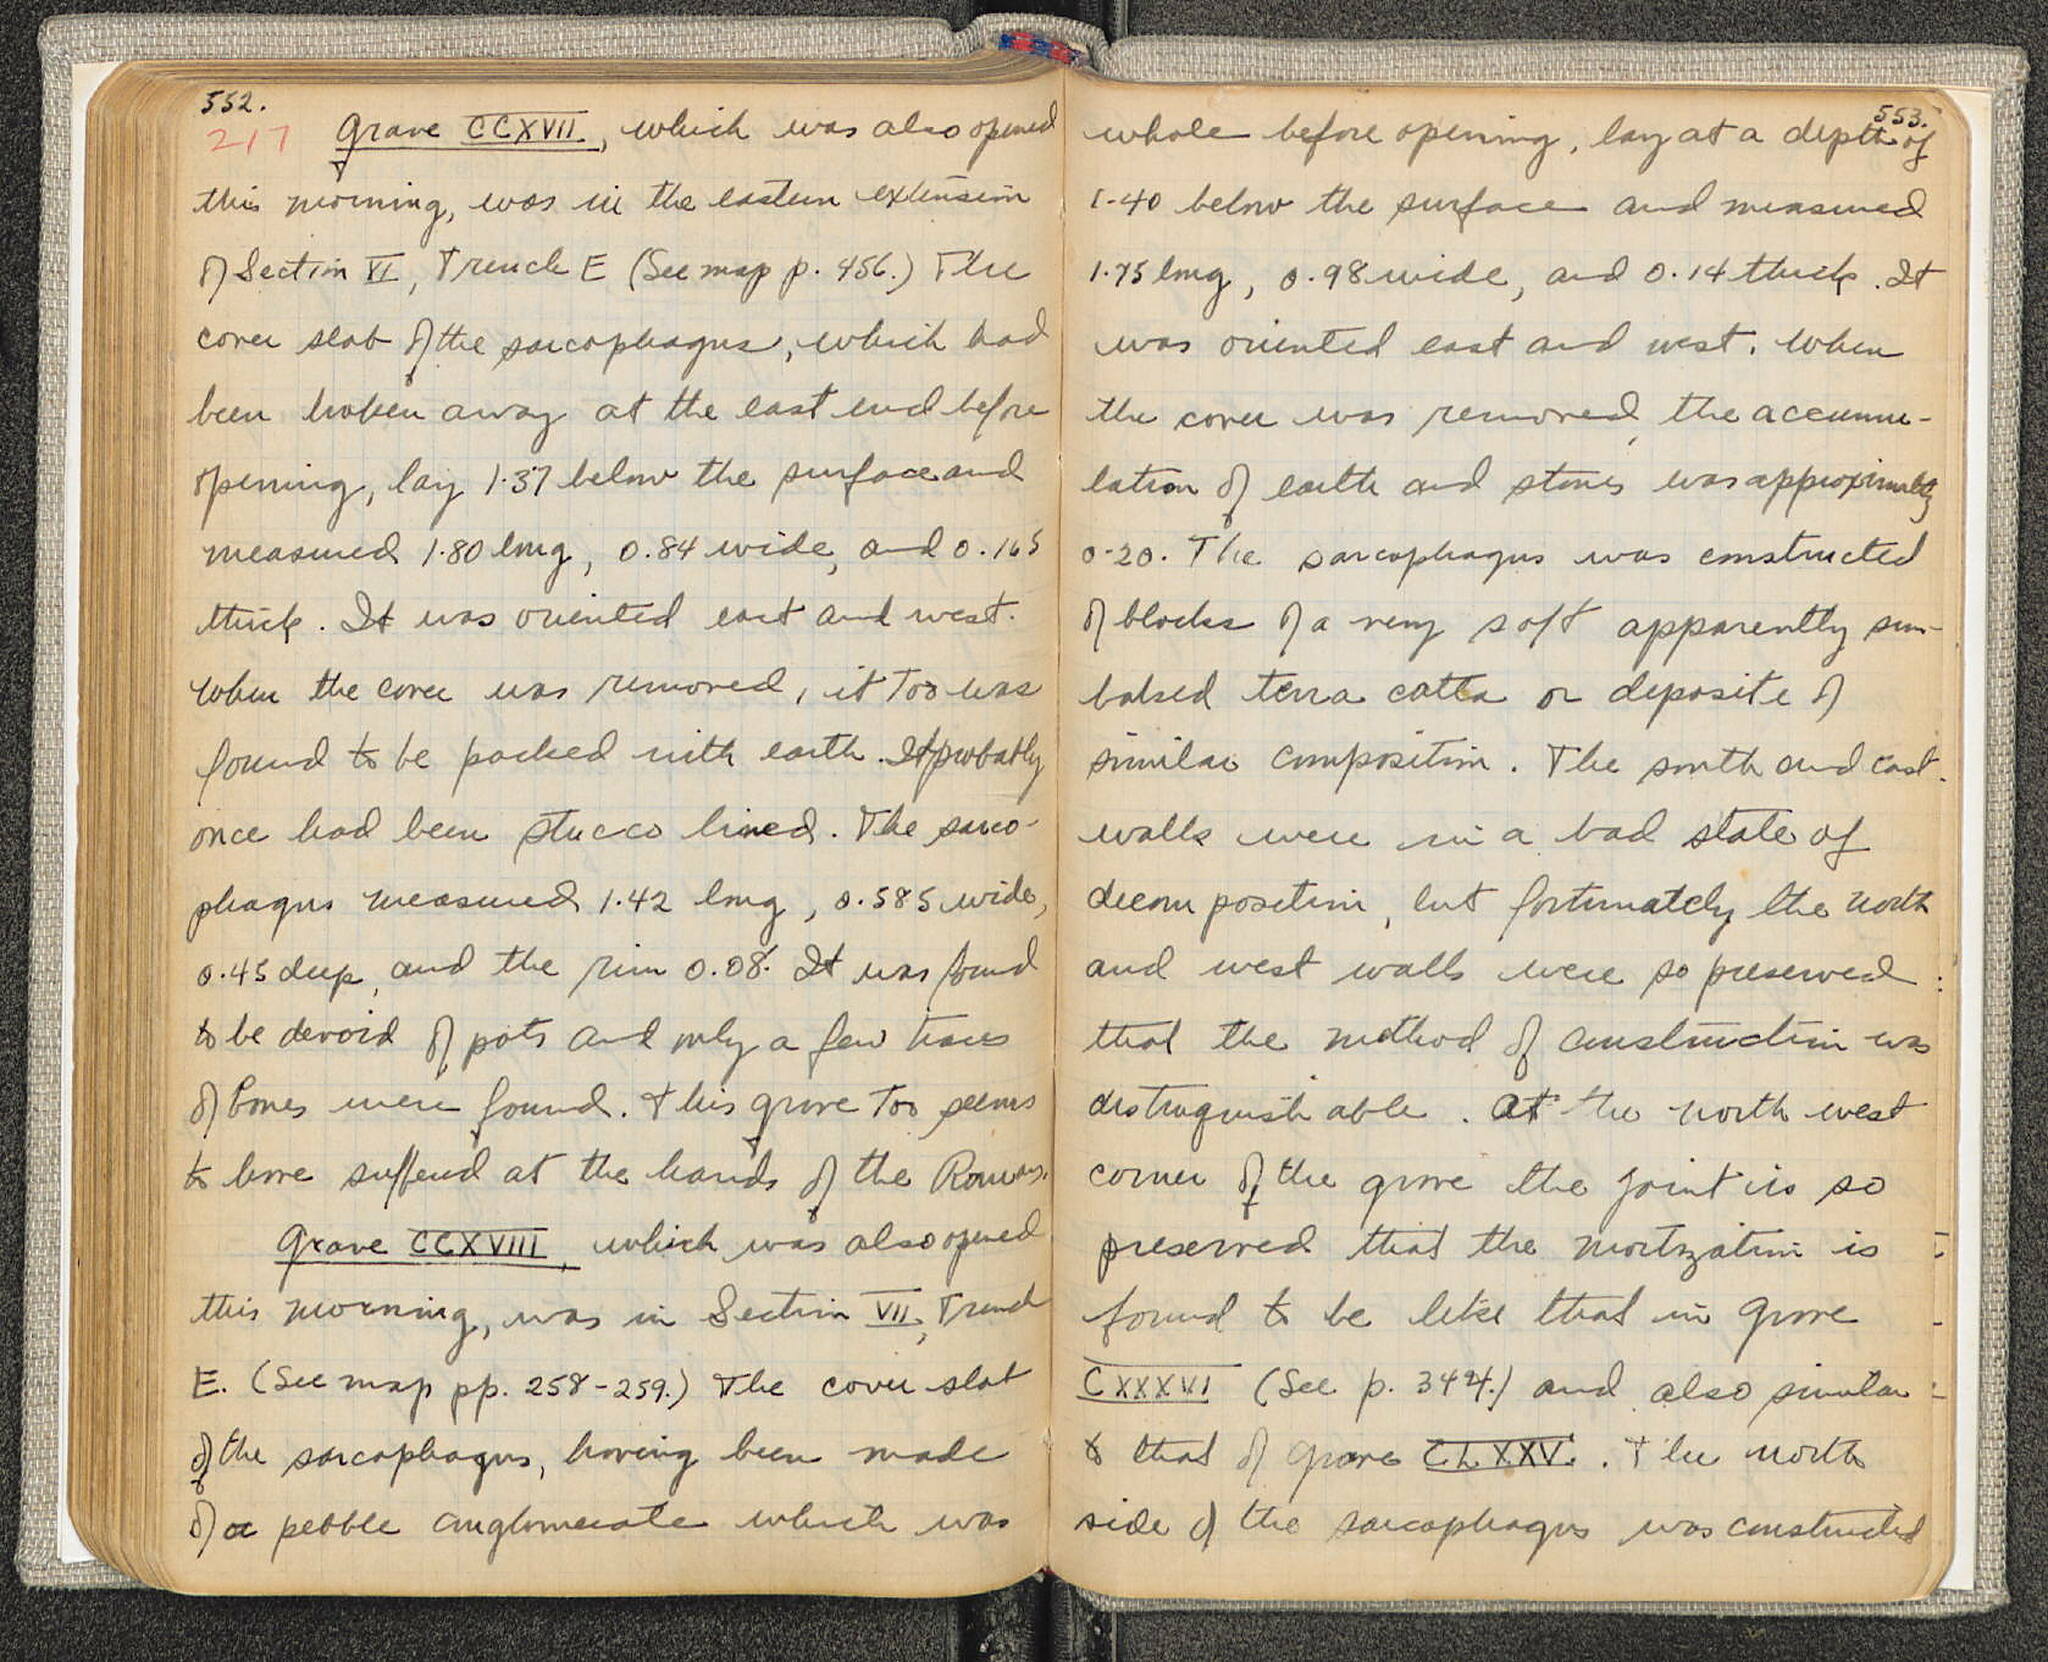 552.
217 Grave CCXVII, which was also opened
this morning, was in the eastern extension
of Section VI, Trench E (See map p. 456.) The
cover slab of the sarcophagus, which had
been broken away at the east end before
opening, lay 1.37 below the surface and
measured 1.80 long, 0.84 wide, and 0.165
thick. It was oriented east and west.
When the cover was removed, it too was
found to be packed with earth. It probably
once had been stucco lined. The sarco-
phagus measured 1.42 long, 0.585 wide,
0.45 deep, and the rim 0.08. It was found
to be devoid of pots and only a few traces
of bones were found. This grave too seems
to have suffered at the hands of the Romans.
Grave CCXVIII, which was also opened
this morning, was in Section VII, Trench
E. (See map pp. 258-259.) The cover slab
of the sarcophagus, having been made
of a pebble conglomerate which was
553.
whole before opening, lay at a depth of
1.40 below the surface and measured
1.75 long, 0.98 wide, and 0.14 thick. It
was oriented east and west. When
the cover was removed, the accumu-
lation of earth and stones was approximately
0.20. The sarcophagus was constructed
of blocks of a very soft apparently sun-
baked terra catta or deposite of
similar composition. The south and east
walls were in a bad state of
decomposition, but fortunately the north
and west walls were so preserved
that the method of construction was
distinguishable. At the north west
corner of the grave the joint is so
preserved that the mortization is
found to be like that in Grave
CXXXVI (See p. 344.) and also similar
to that of Grave CLXXV. The north
side of the sarcophagus was constructed